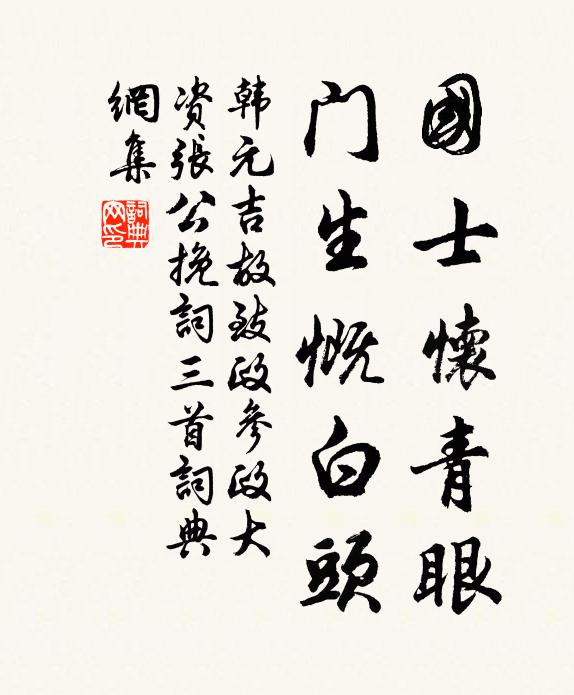 國士懷青眼
门生慨白頭
韩元吉故致政參政大
资張公挽詞三首詞典
網集
詞典网印